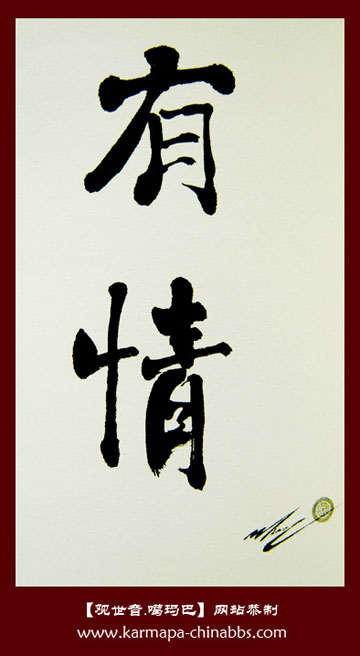 有
情
【观世音.噶玛巴】网站恭制
www.karmapa-chinabbs.com